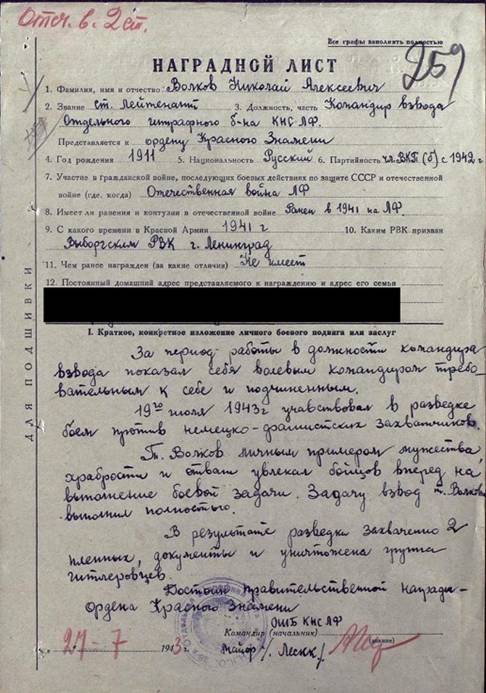 Отм. в. 2 ст.
Все графы заполнять полностью
259
НАГРАДНОЙ ЛИСТ
1. Фамилия, имя и отчество Волков Николай Алексеевич
2. Звание ст. Лейтенант 3. Должность, часть Командир взвода
Отдельного штрафного б-на КНС ЛФ.
Представляется к ордену Красного Знамени
4. Год рождения 1911 5. Национальность Русский 6. Партийность чл. ВКП(б) с 1942 г
7. Участие в гражданской войне, последующих боевых действиях по защите СССР и отечественной
войне (где, когда) Отечественная война ЛФ
8. Имеет ли ранения и контузии в отечественной войне Ранен в 1941 на ЛФ
9. С какого времени в Красной Армии 1941 г 10. Каким РВК призван
Выборгским РВК г. Ленинград
11. Чем ранее награжден (за какие отличия) Не имеет
12. Постоянный домашний адрес представляемого к награждению и адрес его семьи
ДЛЯ ПОДШИВКИ
I. Краткое, конкретное изложение личного боевого подвига или заслуг
За период работы в должности командира
взвода показал себя волевым командиром требо-
вательным к себе и подчиненным.
19го июля 1943г участвовал в разведке
боем против немецко-фашистских захватчиков.
Т. Волков личным примером мужества,
храбрости и отваги увлекал бойцов вперед на
выполнение боевой задачи. Задачу взвод т. Волкова
выполнил полностью.
В результате разведки захвачено 2
пленных, документы и уничтожена группа
гитлеровцев.
Достоин правительственной награды-
Ордена Красного Знамени
ОШБ КНС ЛФ
Командир (начальник)
27-7 1943 г. майор /Лесик/